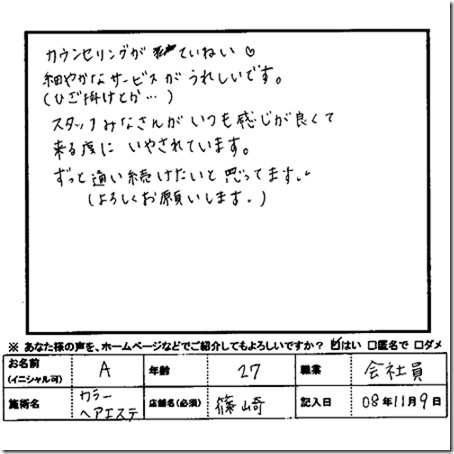 カウンセリングが ていねい♡
細やかなサービスが うれしいです。
(ひざ掛けとか…)
スタッフみなさんが いつも感じが良くて
来る度に いやされています。
ずっと通い続けたいと 思ってます。
(よろしくお願いします。)
※ あなた様の声を、ホームページなどでご紹介してもよろしいですか? ☑はい □匿名で □ダメ
お名前(イニシャル可) A 年齢 27 職業 会社員
施術名 カラー ヘアエステ 店舗名(必須) 篠崎 記入日 08年11月9日